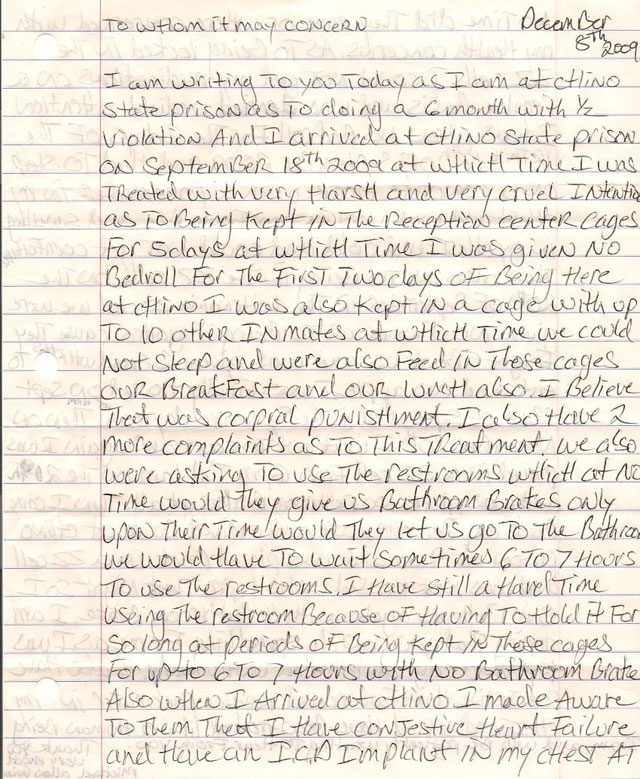 To whom it may concern December
8th 2009
I am writing to you today as I am at chino
state prison as to doing a 6 month with 1/2
violation And I arrived at chino state prison
on September 18th 2009 at which time I was
Treated with very Harsh and very cruel Intention
as to Being kept in the reception center cages
For 5 days at which time I was given no
Bedroll For the First Two days of Being Here
at chino I was also kept in a cage with up
To 10 other Inmates at which time we could
Not sleep and were also Feed in Those cages
our BreakFast and our lunch also. I Believe
That was corpral punishment. I also Have 2
more complaints as to This Treatment. we also
were asking To use The restrooms which at No
Time would They give us Bathroom Brakes only
upon Their Time would They let us go To The Bathroom
we would Have To wait sometimes 6 To 7 Hours
To use The restrooms. I Have still a Hard Time
useing The restroom Because of Having To Hold it For
so long at periods of Being kept in Those cages
For up to 6 To 7 Hours with No Bathroom Brake
Also when I Arrived at chino I made Aware
To Them That I Have conjestive Heart Failure
and Have an I.C.D Implant in my chest AT